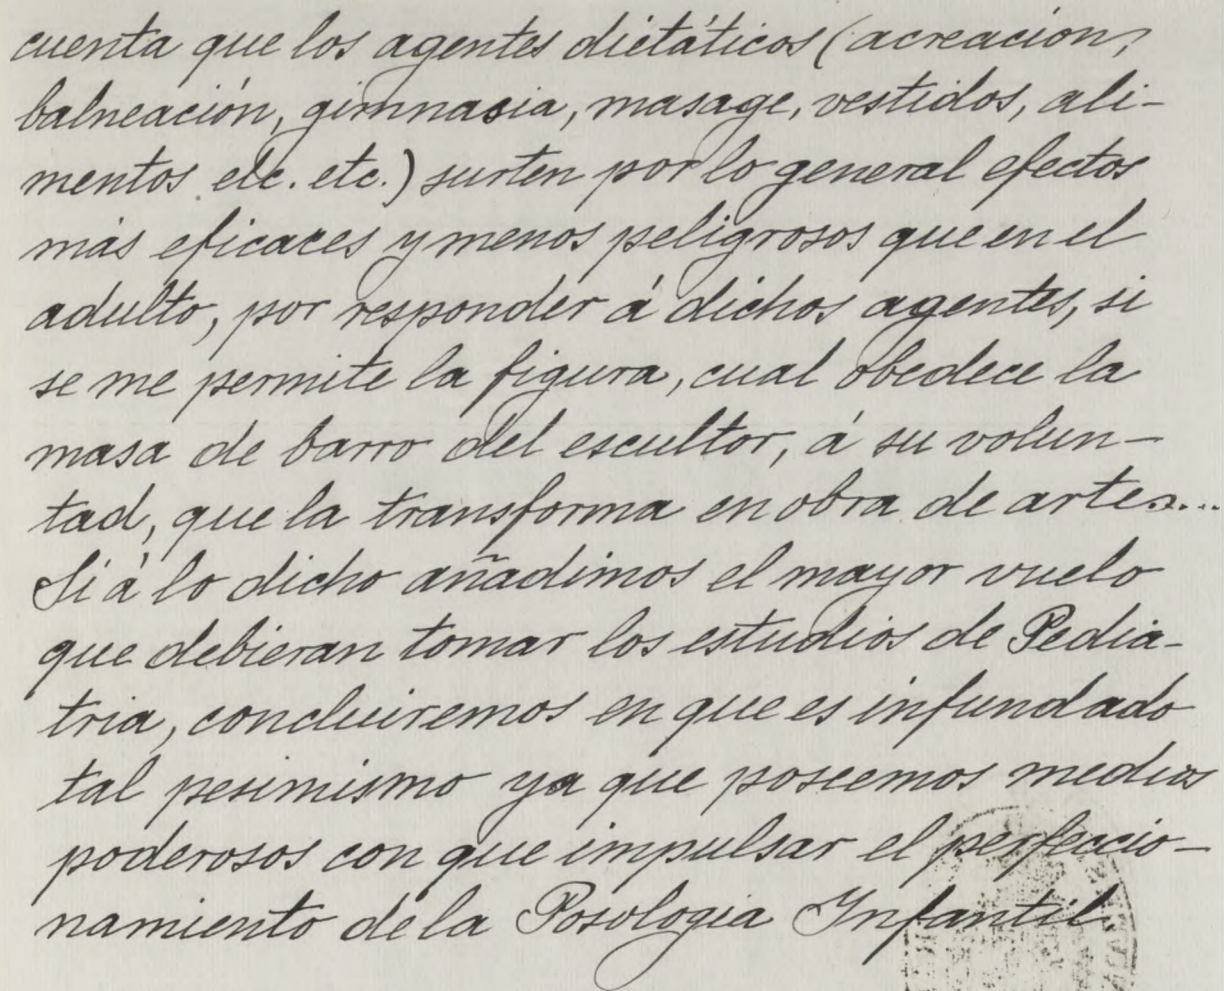 cuenta que los agentes dietáticos (acreación,
balneación, gimnasia, masage, vestidos, ali-
mentos etc. etc.) surten por lo general efectos
más eficaces y menos peligrosos que en el
adulto, por responder á dichos agentes, si
se me permite la figura, cual obedece la
masa de barro del escultor, á su volun-
tad, que la transforma en obra de arte....
Si á lo dicho añadimos el mayor vuelo
que debieran tomar los estudios de Pedia-
tria, concluiremos en que es infundado
tal pesimismo ya que poseemos medios
poderosos con que impulsar el perfeccio-
namiento de la Posologia Infantil